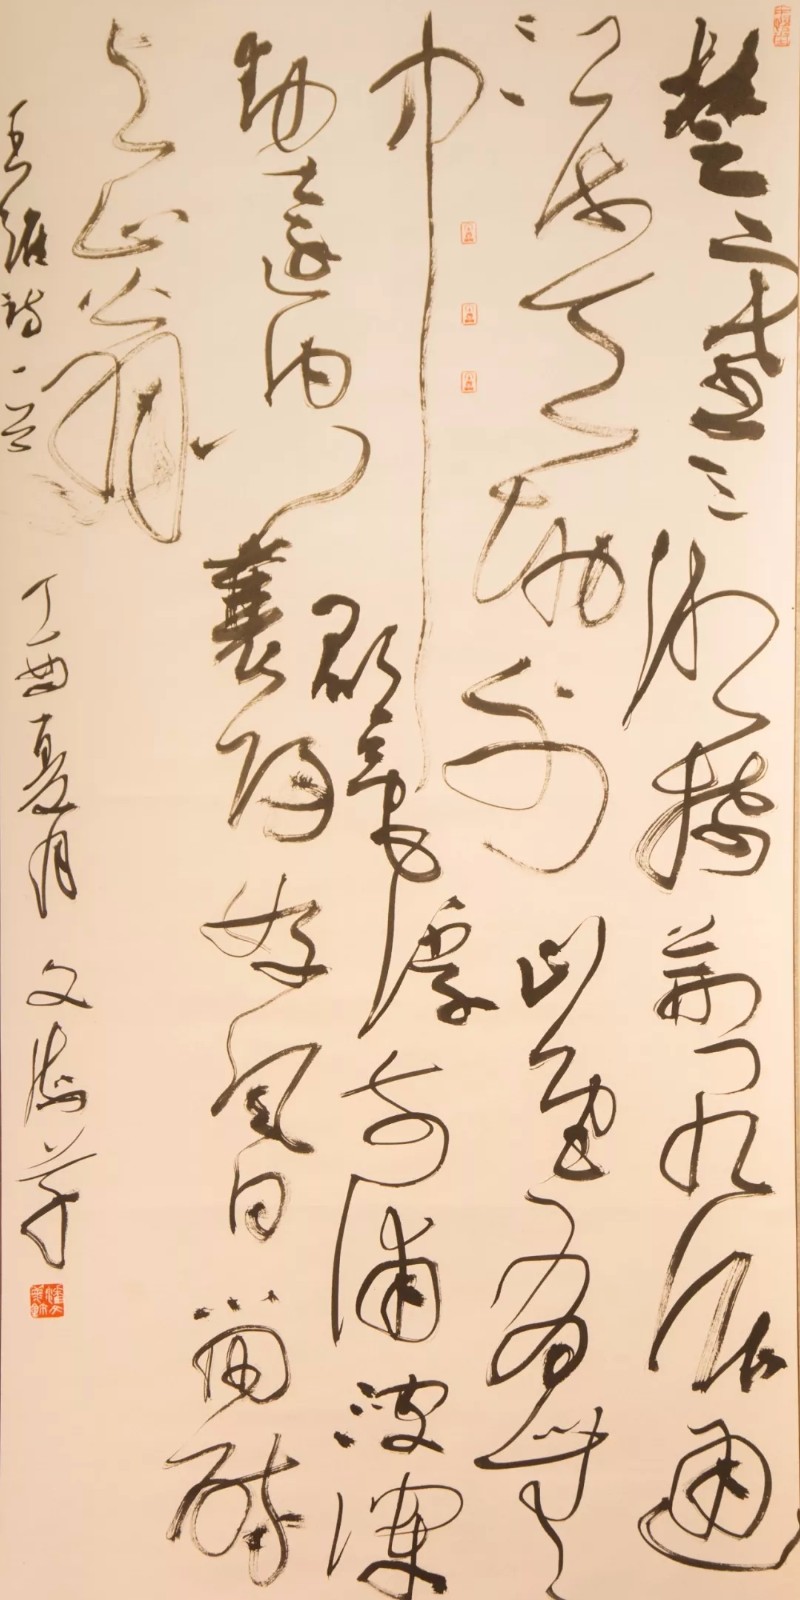 楚塞三湘接荆门九派通
江流天地外山色有无
中郡邑浮前浦波澜
动远空襄阳好风日留醉
与山翁
王维诗一首 丁酉夏月 文